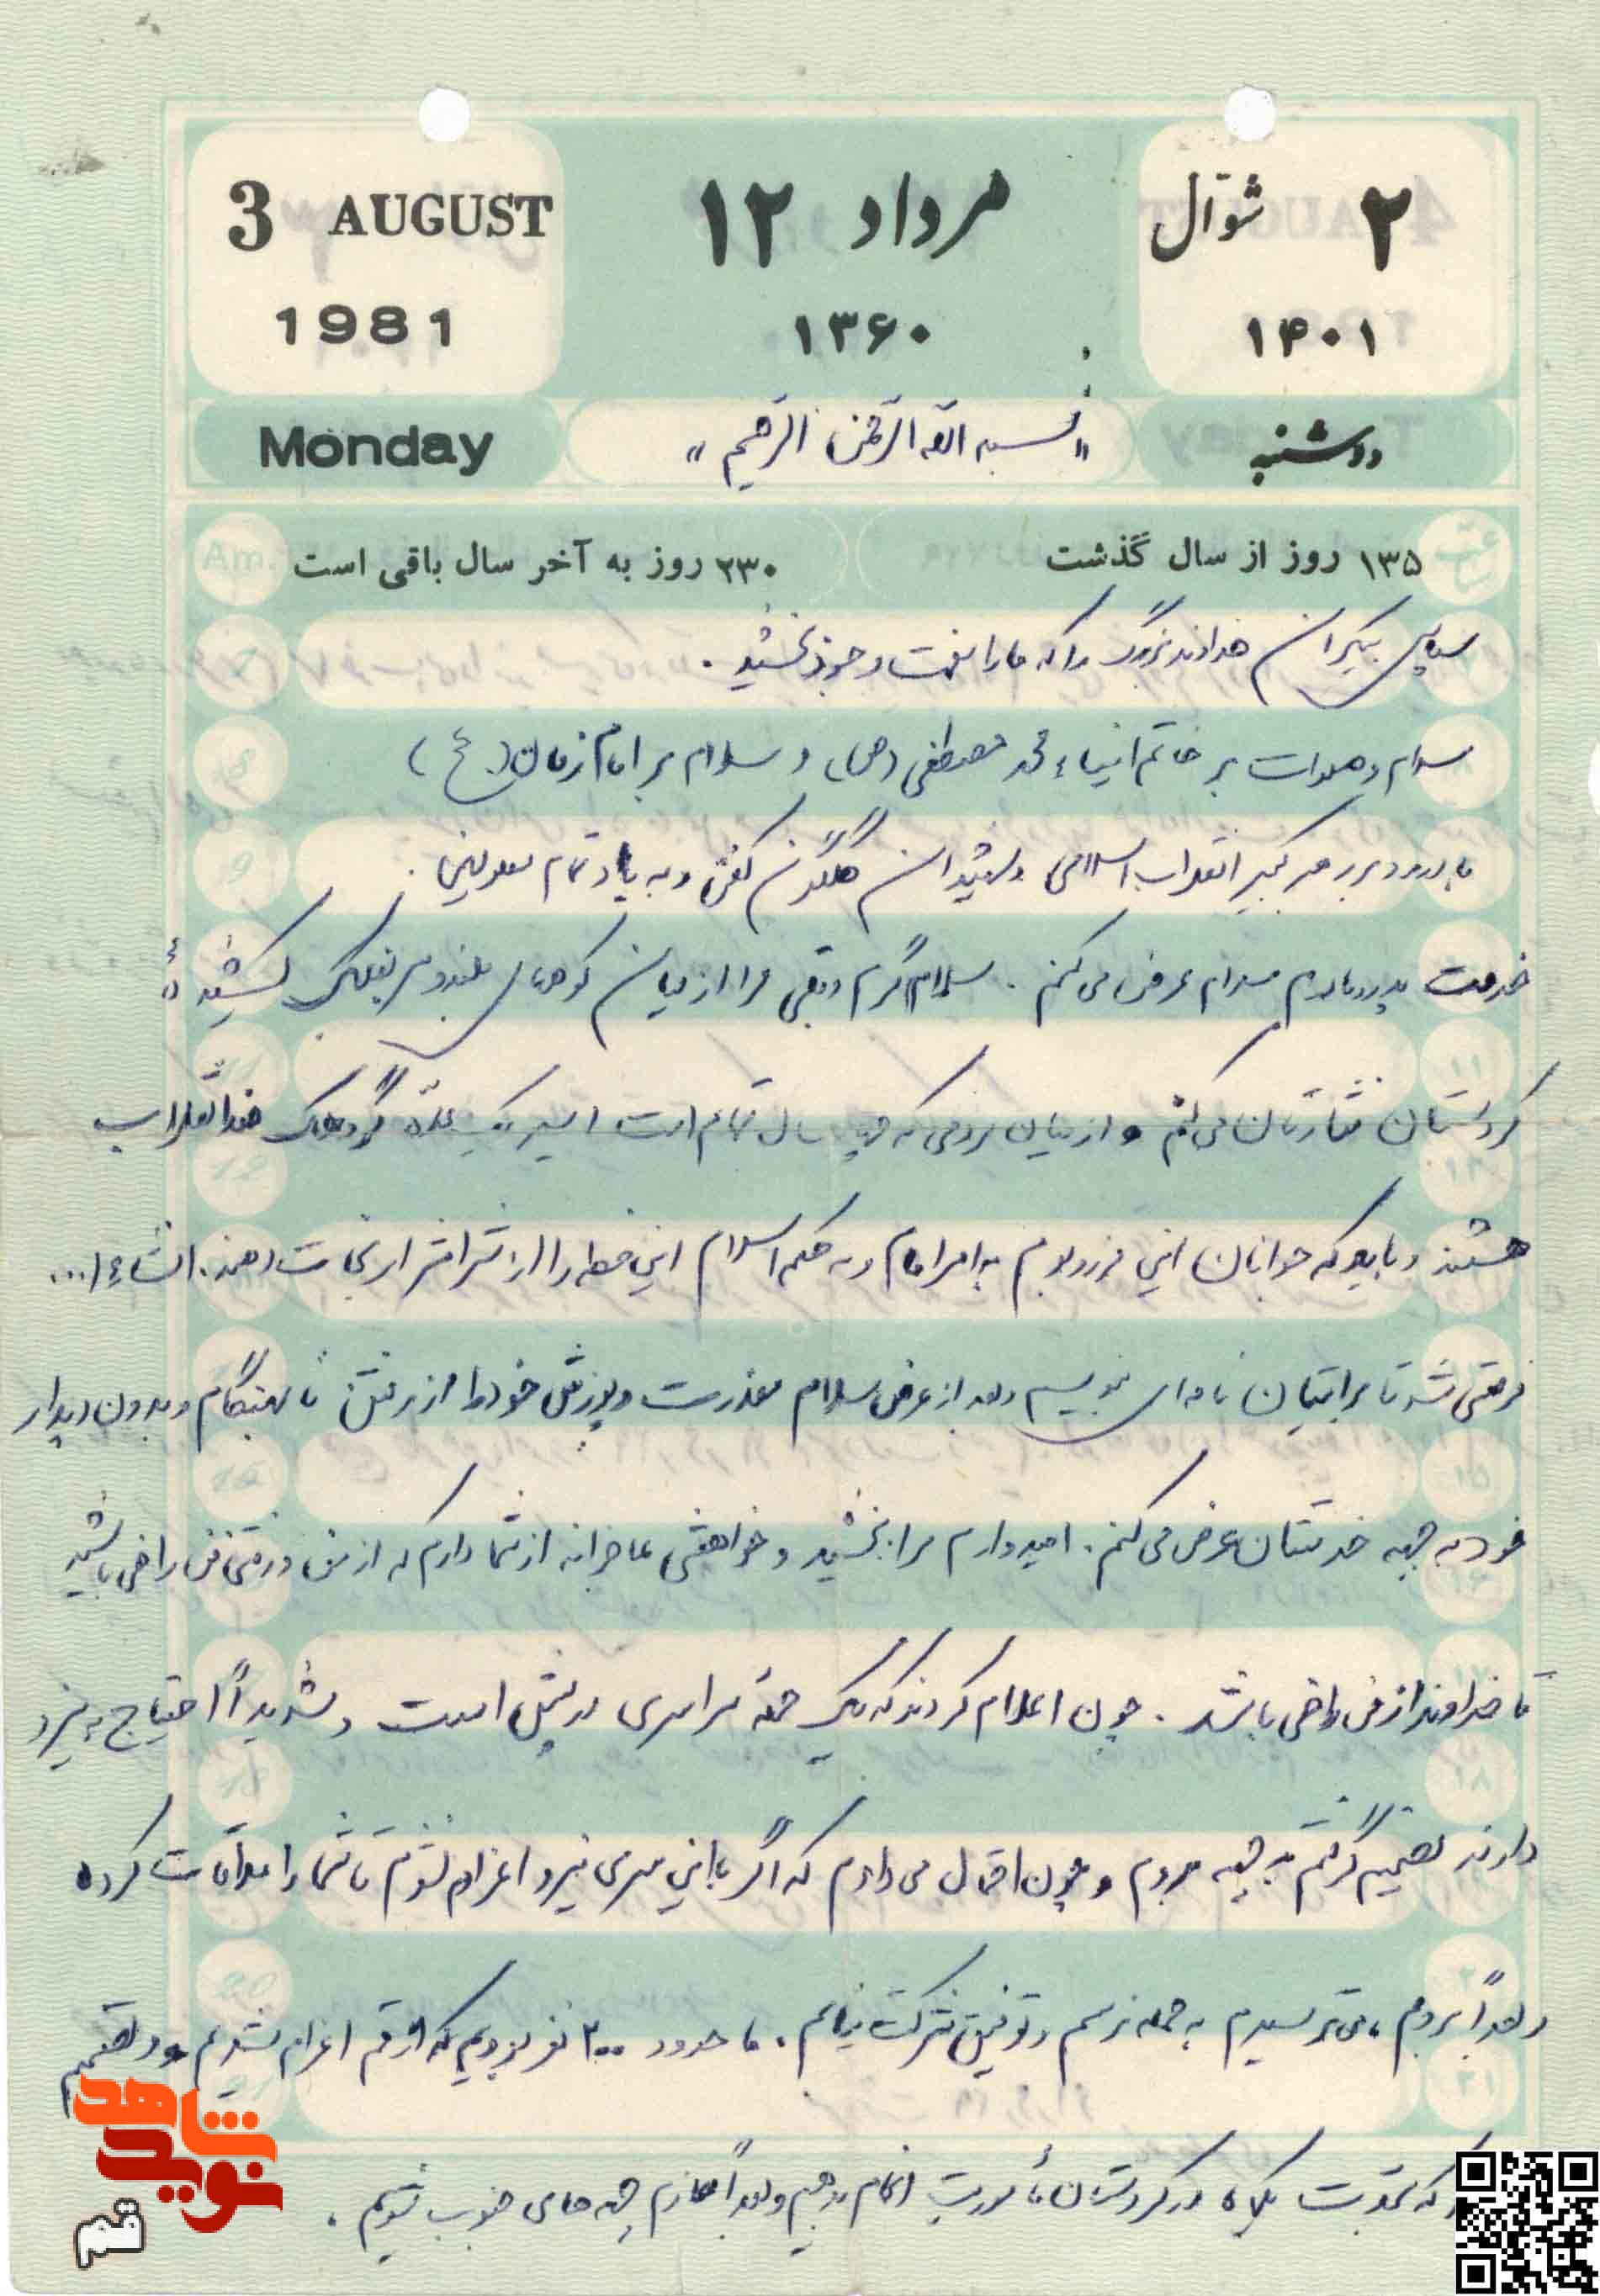 3 AUGUST
1981
Monday
مرداد ۱۲
۱۳۶۰
۲ شوّال
۱۴۰۱
دوشنبه
"بسمه الله الرّحمن الرّحیم"
۱۳۵ روز از سال گذشت
۲۳۰ روز به آخر سال باقی است
سپاس بیکران خداوند بزرگ را که ما را نعمت وجود بخشید.
سلام و صلوات بر خاتم انبیاء محمد مصطفی (ص) و سلام بر امام زمان (عج)
با درود بر رهبر کبیر انقلاب اسلامی و شهیدان گلگون کفن و به یاد تمام معلولین.
خدمت پدر و مادرم سلام عرض می‌کنم. سلام گرم وقلبی مرا از میان کوههای بلند و سر بفلک کشیدهٔ
کردستان نثارتان می‌کنم و از میان مردمی که سال تمام است اسیر یک عدّه گروهک ضدانقلاب
هستند و باید که جوانان این مرز و بوم به امر امام و به حکم اسلام این خطه را از شر اشرار نجات دهند. انشاءا...
فرصتی شد تا برایتان نامه‌ای بنویسم و بعد از عرض سلام معذرت و پوزش خود را از رفتن نابهنگام و بدون دیدار
خود به جبهه خدمتتان عرض می‌کنم. امیدوارم مرا ببخشید و خواهشی عاجزانه از شما دارم که از من و رفتن من راضی باشید
تا خداوند از من راضی باشد. چون اعلام کردند که یک حملهٔ سراسری در پیش است و شدیداً احتیاج به نیرو
دارند تصمیم گرفتم به جبهه بروم و چون احتمال می‌دادم که اگر با این سری نیرو اعزام نشوم تا شما را ملاقات کرده
و بعداً بروم، می‌ترسیدم به حمله نرسم و توفیق شرکت نیابم. ما حدود ۲۰۰ نفر بودیم که از قم اعزام شدیم و تصمیم
که بمدت یکماه در کردستان مأموریت انجام بدهیم و بعداً عازم جبهه‌های جنوب شویم.
نوید شاهد
قم